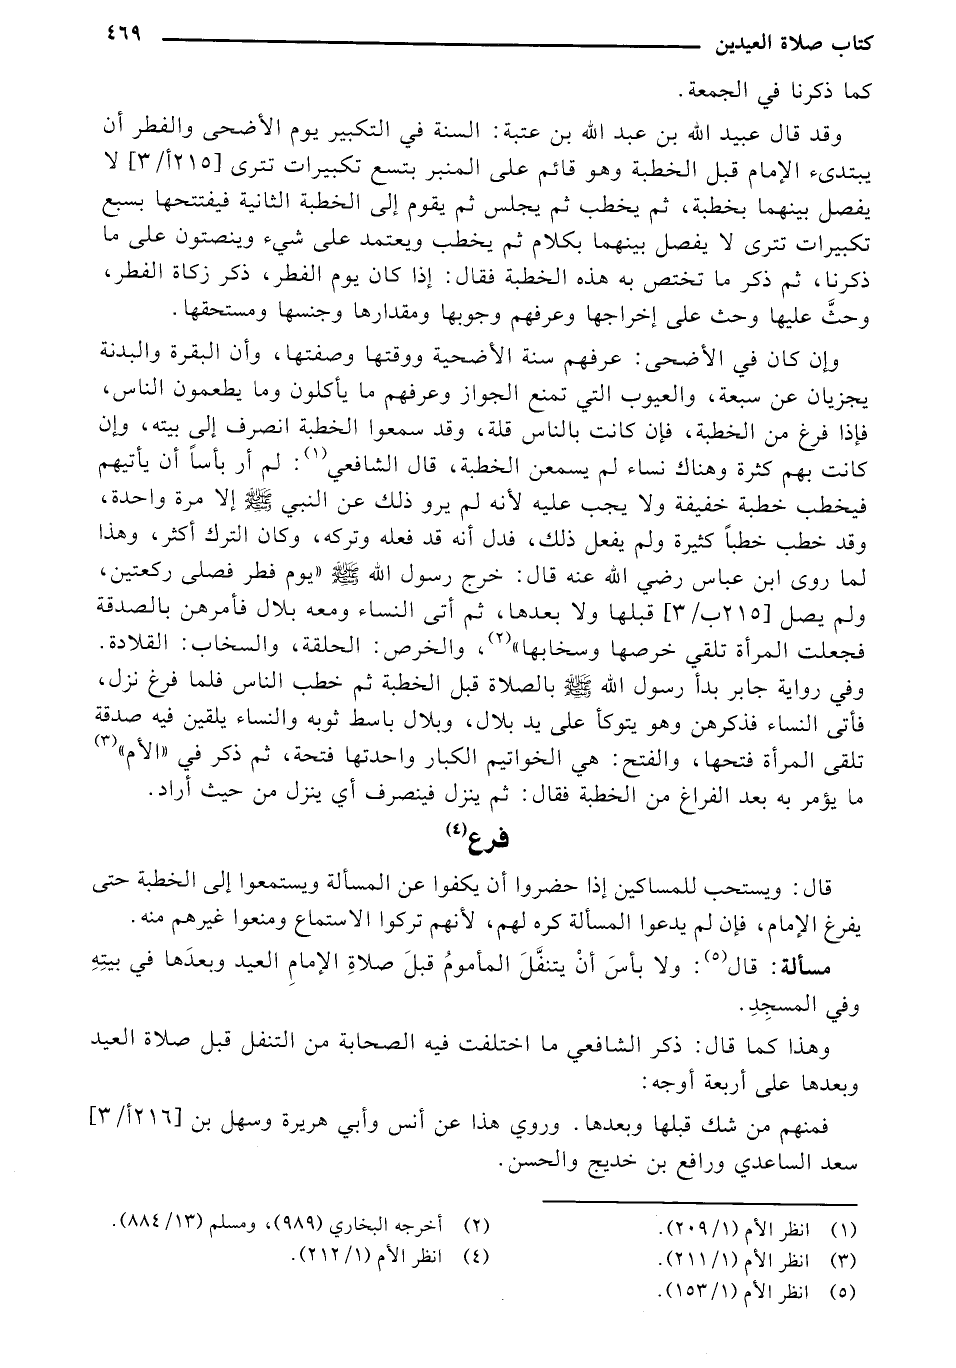 كتاب صلاة العيدين ٤٦٩
كما ذكرنا في الجمعة.
وقد قال عبيد الله بن عبد الله بن عتبة: السنة في التكبير يوم الأضحى والفطر أن
يبتدىء الإمام قبل الخطبة وهو قائم على المنبر بتسع تكبيرات تترى [٢١٥أ/ ٣] لا
يفصل بينهما بخطبة، ثم يخطب ثم يجلس ثم يقوم إلى الخطبة الثانية فيفتتحها بسبع
تكبيرات تترى لا يفصل بينهما بكلام ثم يخطب ويعتمد على شيء وينصتون على ما
ذكرنا، ثم ذكر ما تختص به هذه الخطبة فقال: إذا كان يوم الفطر، ذكر زكاة الفطر،
وحثَّ عليها وحث على إخراجها وعرفهم وجوبها ومقدارها وجنسها ومستحقها.
وإن كان في الأضحى: عرفهم سنة الأضحية ووقتها وصفتها، وأن البقرة والبدنة
يجزيان عن سبعة، والعيوب التي تمنع الجواز وعرفهم ما يأكلون وما يطعمون الناس،
فإذا فرغ من الخطبة، فإن كانت بالناس قلة، وقد سمعوا الخطبة انصرف إلى بيته، وإن
كانت بهم كثرة وهناك نساء لم يسمعن الخطبة، قال الشافعي(١): لم أر بأساً أن يأتيهم
فيخطب خطبة خفيفة ولا يجب عليه لأنه لم يرو ذلك عن النبي ﷺ إلا مرة واحدة،
وقد خطب خطباً كثيرة ولم يفعل ذلك، فدل أنه قد فعله وتركه، وكان الترك أكثر، وهذا
لما روى ابن عباس رضي الله عنه قال: خرج رسول الله ﷺ «يوم فطر فصلى ركعتين،
ولم يصل [٢١٥ب/ ٣] قبلها ولا بعدها، ثم أتى النساء ومعه بلال فأمرهن بالصدقة
فجعلت المرأة تلقي خرصها وسخابها»(٢)، والخرص: الحلقة، والسخاب: القلادة.
وفي رواية جابر بدأ رسول الله ﷺ بالصلاة قبل الخطبة ثم خطب الناس فلما فرغ نزل،
فأتى النساء فذكرهن وهو يتوكأ على يد بلال، وبلال باسط ثوبه والنساء يلقين فيه صدقة
تلقى المرأة فتحها، والفتح: هي الخواتيم الكبار واحدتها فتحة، ثم ذكر في «الأم»(٣)
ما يؤمر به بعد الفراغ من الخطبة فقال: ثم ينزل فينصرف أي ينزل من حيث أراد.
فرع(٤)
قال: ويستحب للمساكين إذا حضروا أن يكفوا عن المسألة ويستمعوا إلى الخطبة حتى
يفرغ الإمام، فإن لم يدعوا المسألة كره لهم، لأنهم تركوا الاستماع ومنعوا غيرهم منه.
مسألة: قال(٥): ولا بأسَ أنْ يتنفَّلَ المأمومُ قبلَ صلاةِ الإمامِ العيد وبعدَها في بيتِهِ
وفي المسجِدِ.
وهذا كما قال: ذكر الشافعي ما اختلفت فيه الصحابة من التنفل قبل صلاة العيد
وبعدها على أربعة أوجه:
فمنهم من شك قبلها وبعدها. وروي هذا عن أنس وأبي هريرة وسهل بن [٢١٦أ/ ٣]
سعد الساعدي ورافع بن خديج والحسن.
(١) انظر الأم (١/ ٢٠٩).
(٢) أخرجه البخاري (٩٨٩)، ومسلم (١٣/ ٨٨٤).
(٣) انظر الأم (١/ ٢١١).
(٤) انظر الأم (١/ ٢١٢).
(٥) انظر الأم (١/ ١٥٣).